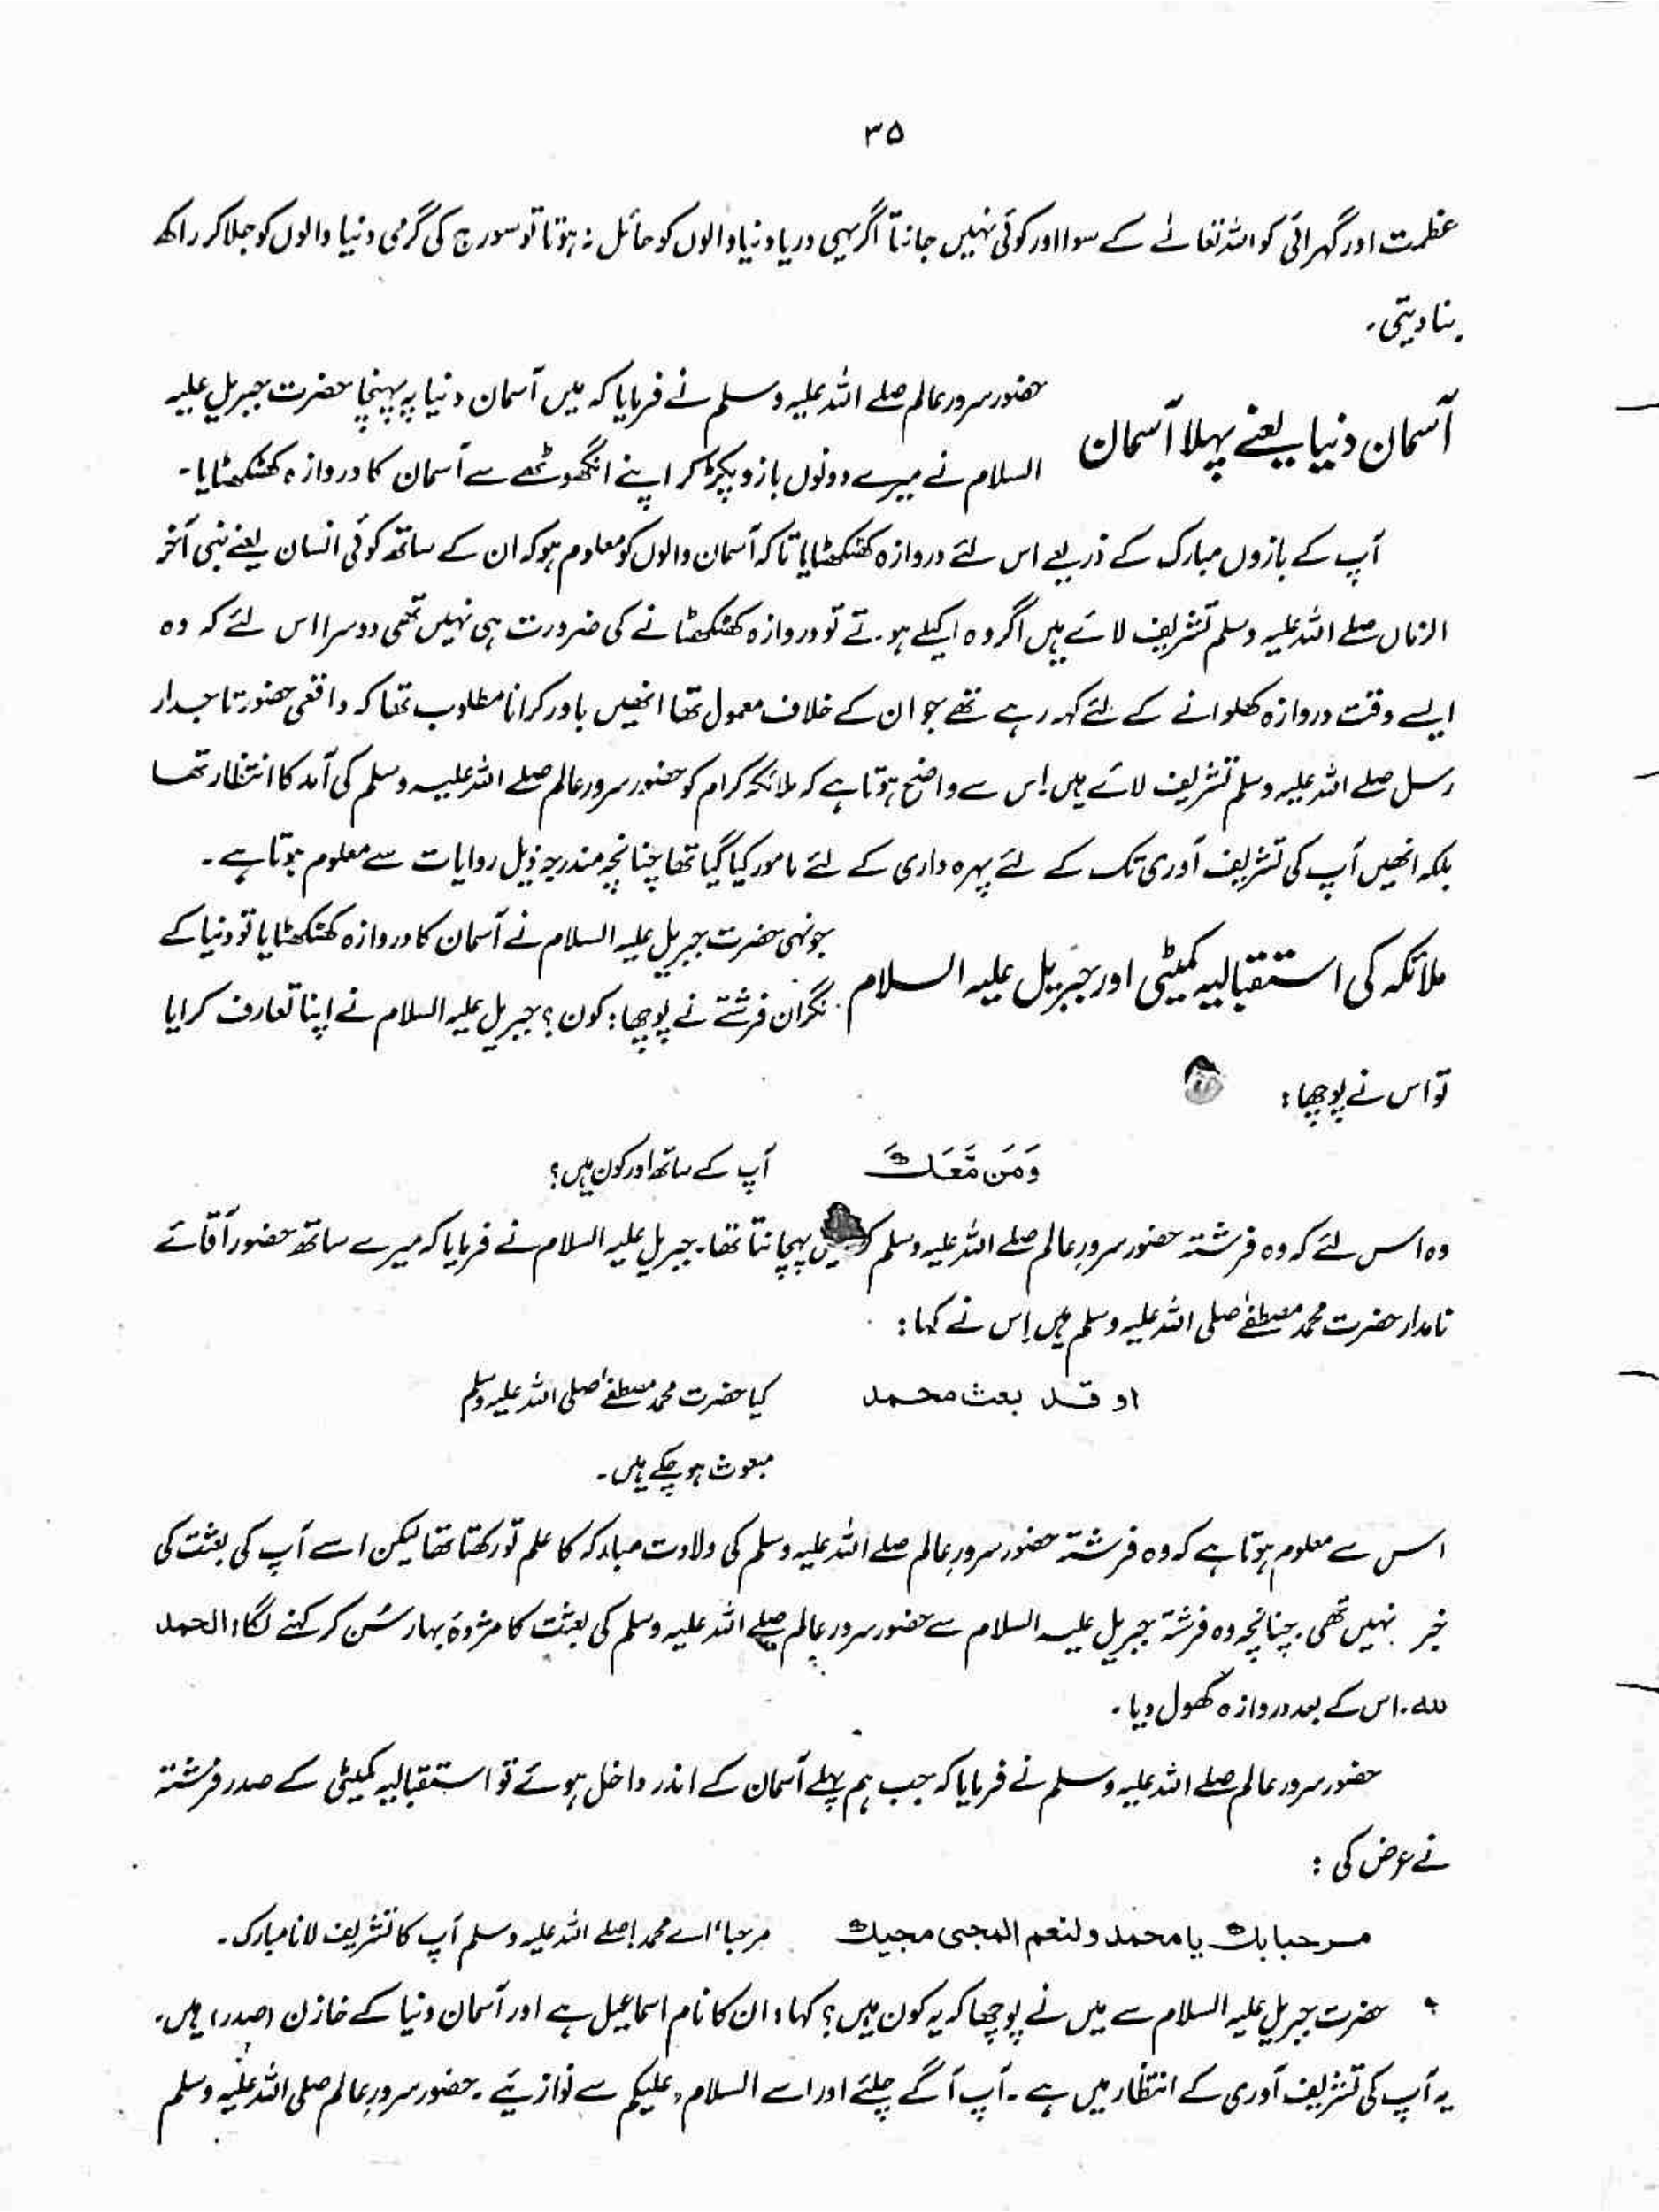 ۳۵
عظمت اور گہرائی کو اللہ تعالےٰ کے سوا اور کوئی نہیں جانتا اگر یہی دریا دنیا والوں کو حائل نہ ہوتا تو سورج کی گرمی دنیا والوں کو جلا کر راکھ
بنا دیتی۔
آسمان دنیا یعنے پہلا آسمان
حضور سرور عالم صلے اللہ علیہ وسلم نے فرمایا کہ میں آسمان دنیا پہ پہنچا حضرت جبریل علیہ
السلام نے میرے دونوں بازو پکڑ کر اپنے انگھوٹھے سے آسمان کا دروازہ کھٹکھٹایا۔
آپ کے بازوں مبارک کے ذریعے اس لئے دروازہ کھٹکھٹایا تاکہ آسمان والوں کو معلوم ہو کہ ان کے ساتھ کوئی انسان یعنے نبی آخر
الزماں صلے اللہ علیہ وسلم تشریف لائے ہیں اگر وہ اکیلے ہوتے تو دروازہ کھٹکھٹانے کی ضرورت ہی نہیں تھی دوسرا اس لئے کہ وہ
ایسے وقت دروازہ کھلوانے کے لئے کہہ رہے تھے جو ان کے خلاف معمول تھا انھیں باور کرانا مطلوب تھا کہ واقعی حضور تاجدار
رسل صلے اللہ علیہ وسلم تشریف لائے ہیں اس سے واضح ہوتا ہے کہ ملائکہ کرام کو حضور سرور عالم صلے اللہ علیہ وسلم کی آمد کا انتظار تھا
بلکہ انھیں آپ کی تشریف آوری تک کے لئے پہرہ داری کے لئے مامور کیا گیا تھا چنانچہ مندرجہ ذیل روایات سے معلوم ہوتا ہے۔
ملائکہ کی استقبالیہ کمیٹی اور جبریل علیہ السلام
جونہی حضرت جبریل علیہ السلام نے آسمان کا دروازہ کھٹکھٹایا تو دنیا کے
نگران فرشتے نے پوچھا: کون؟ جبریل علیہ السلام نے اپنا تعارف کرایا
تو اس نے پوچھا:
وَمَن مَّعَكَ آپ کے ساتھ اور کون ہیں؟
وہ اس لئے کہ وہ فرشتہ حضور سرورِ عالم صلے اللہ علیہ وسلم پہچانتا تھا۔ جبریل علیہ السلام نے فرمایا کہ میرے ساتھ حضور آقائے
نامدار حضرت محمد مصطفےٰ صلی اللہ علیہ وسلم ہیں اس نے کہا:
او قد بعث محمد کیا حضرت محمد مصطفےٰ صلی اللہ علیہ وسلم
مبعوث ہو چکے ہیں۔
اس سے معلوم ہوتا ہے کہ وہ فرشتہ حضور سرورِ عالم صلے اللہ علیہ وسلم کی ولادت مبارکہ کا علم تو رکھتا تھا لیکن اسے آپ کی بعثت کی
خبر نہیں تھی۔ چنانچہ وہ فرشتہ جبریل علیہ السلام سے حضور سرور عالم صلے اللہ علیہ وسلم کی بعثت کا مژدۂ بہار سُن کر کہنے لگا: الحمد
للہ۔ اس کے بعد دروازہ کھول دیا۔
حضور سرور عالم صلے اللہ علیہ وسلم نے فرمایا کہ جب ہم پہلے آسمان کے اندر داخل ہوئے تو استقبالیہ کمیٹی کے صدر فرشتہ
نے عرض کی:
مرحبا بك يا محمد ولنعم المجی مجيك مرحبا، اے محمد! صلے اللہ علیہ وسلم آپ کا تشریف لانا مبارک۔
حضرت جبریل علیہ السلام سے میں نے پوچھا کہ یہ کون ہیں؟ کہا: ان کا نام اسماعیل ہے اور آسمان دنیا کے خازن (صدر) ہیں۔
یہ آپ کی تشریف آوری کے انتظار میں ہے۔ آپ آگے چلئے اور اسے السلام علیکم سے نوازئیے۔ حضور سرورِ عالم صلی اللہ علیہ وسلم